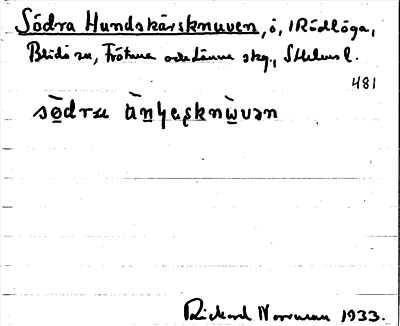 Södra Hundskärsknuven, ö, i Rödlöga,
Blidö sn, Frötuna och Länna skg., Sthlms l.
481
Rickard Norrman 1933.